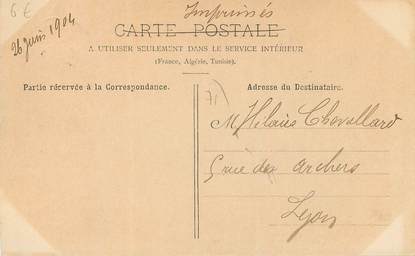 6 €
Imprimés
26 juin 1904
CARTE POSTALE
A UTILISER SEULEMENT DANS LE SERVICE INTÉRIEUR
(France, Algérie, Tunisie).
Partie récervée à la Correspondance.
Adresse du Destinataire.
71
M Hilaire Chevallard
5 rue des Archers
Lyon